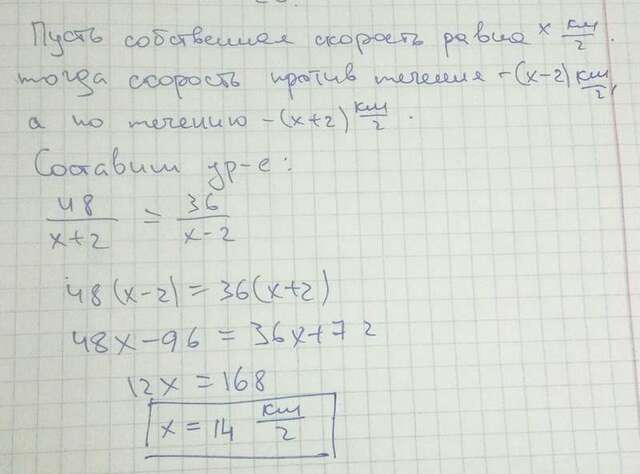 Пусть собственная скорость равна x км/г.
тогда скорость против течения - (x-2) км/г,
а по течению - (x+2) км/г.
Составим ур-е:
48/(x+2) = 36/(x-2)
48(x-2) = 36(x+2)
48x-96 = 36x+72
12x = 168
x = 14 км/г